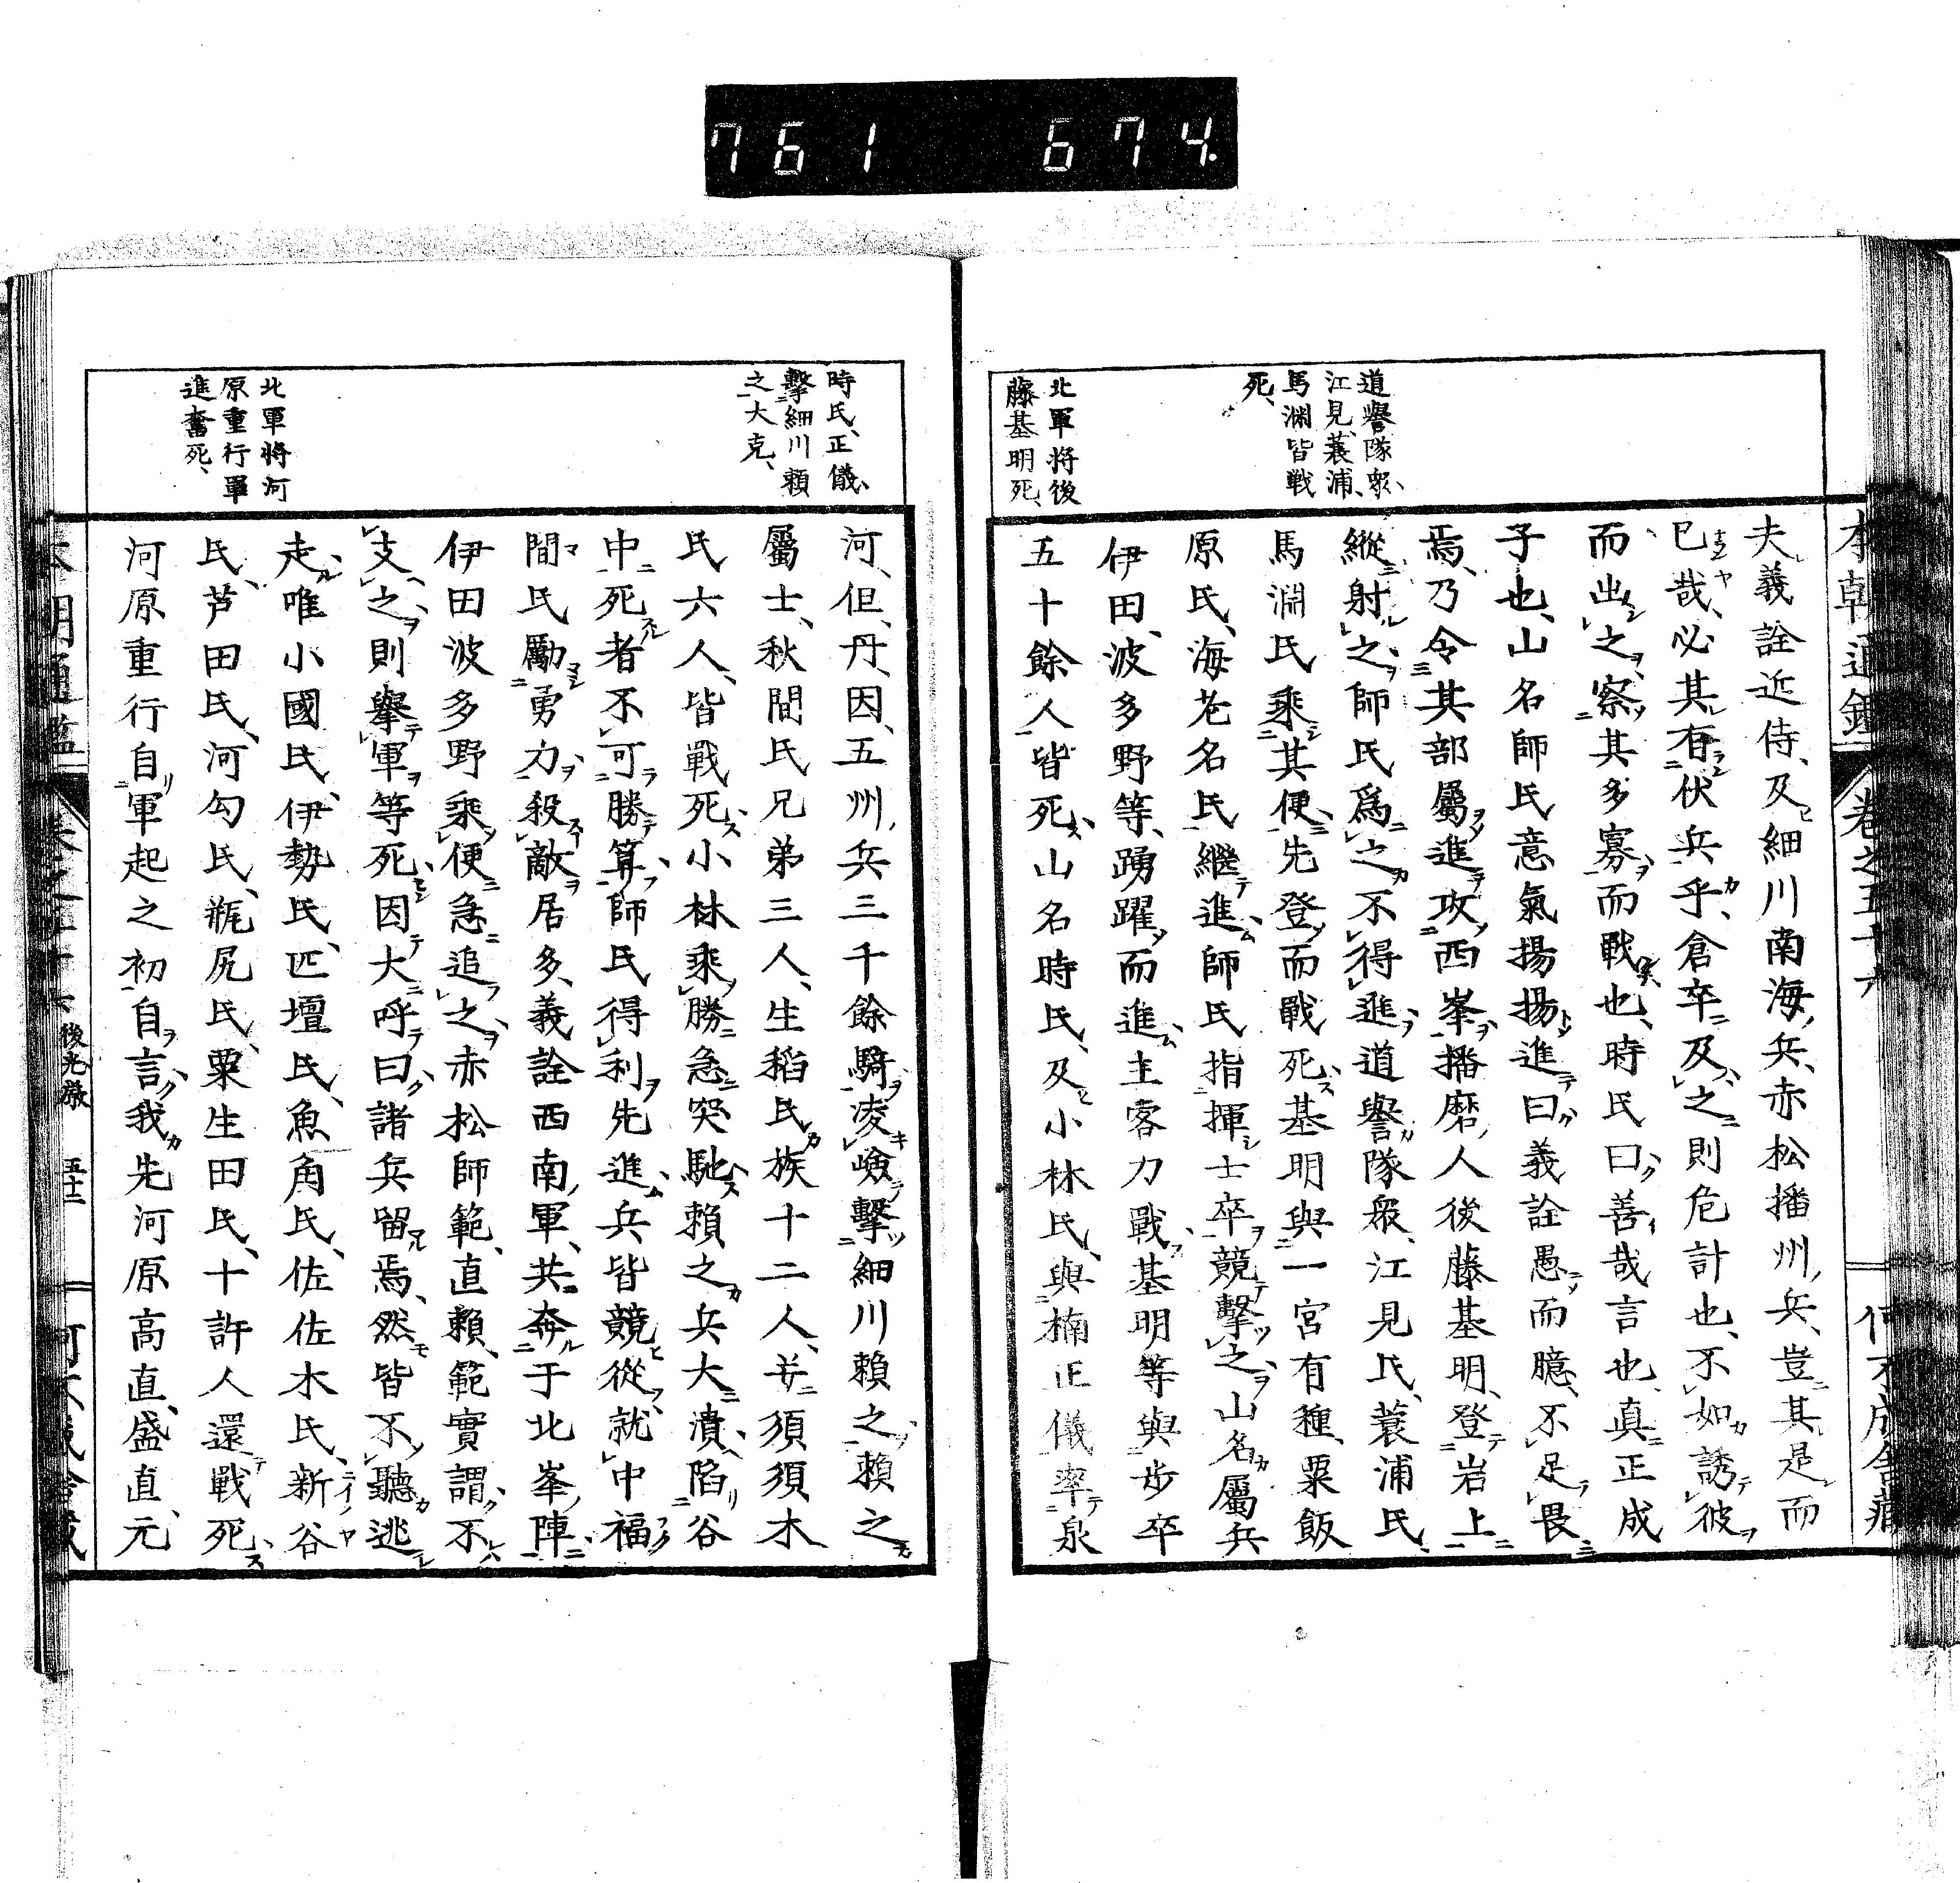 761 674.
道譽隊衆、
江見、蓑浦、
馬渊皆戦
死、
北軍將後
藤基明死、
夫義詮近侍、及細川南海兵、赤松播州兵、豈其是而
巳哉、必其有伏兵乎、倉卒及之則危計也、不如誘彼
而出之、察其多寡而戦也、時氏曰善哉言也、真正成
子也、山名師氏意氣揚揚進曰義詮愚而臆、不足畏
焉、乃令其部屬進攻西峯、播磨人後藤基明、登岩上
縱射之、師氏爲之不得進、道譽隊衆、江見氏、蓑浦氏、
馬渊氏乘其便先登而戰死、基明與一宮有種、粟飯
原氏、海老名氏繼進、師氏指揮士卒競擊之、山名屬兵
伊田、波多野等、踴躍而進、主客力戰、基明等與步卒
五十餘人皆死、山名時氏、及小林氏、與楠正儀率泉
時氏、正儀、
擊細川頼
之大克、
北軍將河
原重行單
進奮死、
河、但、丹、因、五州兵三千餘騎凌嶮擊細川賴之、賴之
屬士、秋間氏兄弟三人、生稻氏族十二人、并須須木
氏六人、皆戰死、小林乘勝急突馳、賴之兵大潰、陷谷
中死者不可勝算、師氏得利先進、兵皆競從、就中福
間氏勵勇力殺敵居多、義詮西南軍、共奔于北峯陣、
伊田波多野乘便急追之、赤松師範、直賴、範實謂、不
支之則舉軍等死、因大呼曰、諸兵留焉、然皆不聽逃
走、唯小國氏、伊勢氏、匹壇氏、魚角氏、佐佐木氏、新谷
氏、芦田氏、河勾氏、瓶尻氏、粟生田氏、十許人還戰死、
河原重行自軍起之初、自言、我先河原高直、盛直、元
後光嚴 五十二